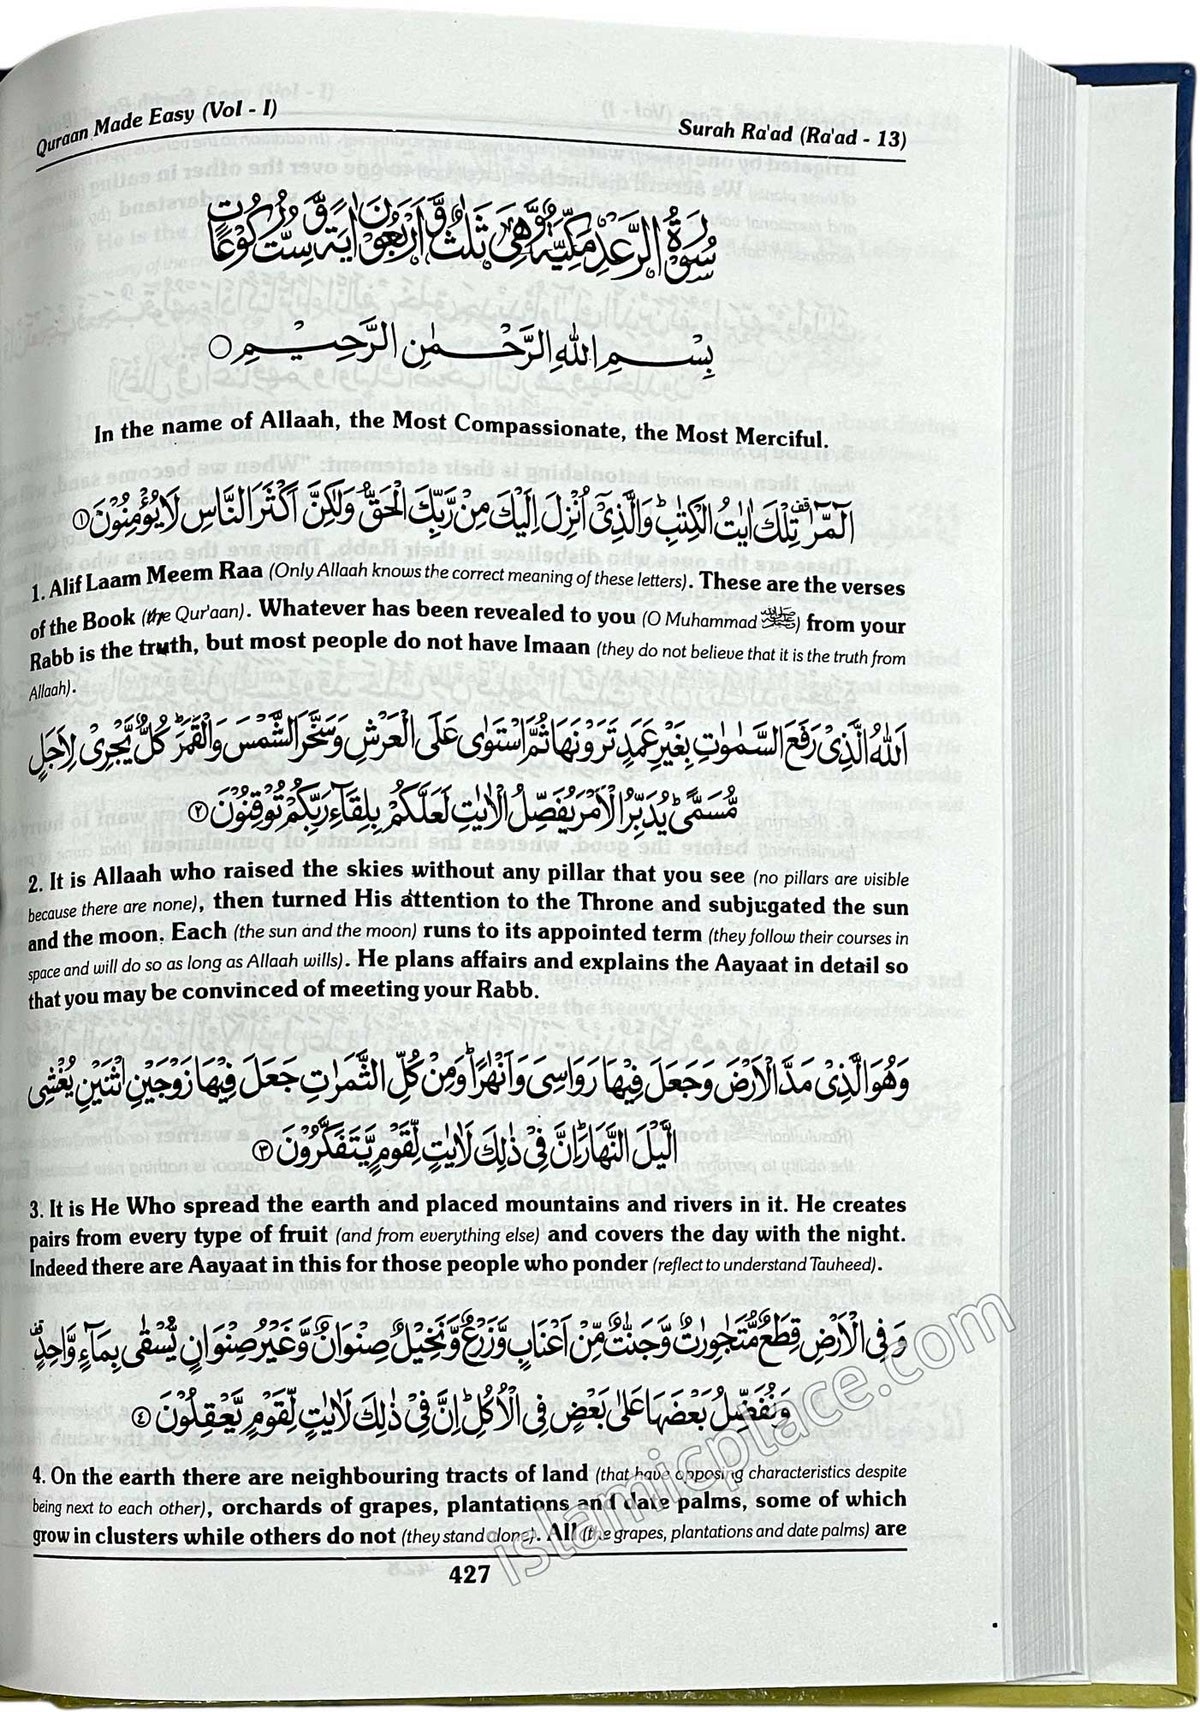 Quraan Made Easy (Vol - I)
Surah Ra'ad (Ra'ad - 13)
سُوْرَةُ الرَّعْدِ مَكِّيَّةٌ وَّهِيَ ثَلٰثٌ وَّاَرْبَعُوْنَ اٰيَةً وَّسِتُّ رُكُوْعَاتٍ
بِسْمِ اللّٰهِ الرَّحْمٰنِ الرَّحِيْمِ ○
In the name of Allaah, the Most Compassionate, the Most Merciful.
الٓمّٓرٰ ۫ تِلْكَ اٰيٰتُ الْكِتٰبِ ؕ وَالَّذِيْٓ اُنْزِلَ اِلَيْكَ مِنْ رَّبِّكَ الْحَقُّ وَلٰكِنَّ اَكْثَرَ النَّاسِ لَا يُؤْمِنُوْنَ ﴿۱﴾
1. Alif Laam Meem Raa (Only Allaah knows the correct meaning of these letters). These are the verses
of the Book (the Qur'aan). Whatever has been revealed to you (O Muhammad ﷺ) from your
Rabb is the truth, but most people do not have Imaan (they do not believe that it is the truth from
Allaah).
اَللّٰهُ الَّذِيْ رَفَعَ السَّمٰوٰتِ بِغَيْرِ عَمَدٍ تَرَوْنَهَا ثُمَّ اسْتَوٰى عَلَى الْعَرْشِ وَسَخَّرَ الشَّمْسَ وَالْقَمَرَ ؕ كُلٌّ يَّجْرِيْ لِاَجَلٍ
مُّسَمًّى ؕ يُدَبِّرُ الْاَمْرَ يُفَصِّلُ الْاٰيٰتِ لَعَلَّكُمْ بِلِقَآءِ رَبِّكُمْ تُوْقِنُوْنَ ﴿۲﴾
2. It is Allaah who raised the skies without any pillar that you see (no pillars are visible
because there are none), then turned His attention to the Throne and subjugated the sun
and the moon. Each (the sun and the moon) runs to its appointed term (they follow their courses in
space and will do so as long as Allaah wills). He plans affairs and explains the Aayaat in detail so
that you may be convinced of meeting your Rabb.
وَهُوَ الَّذِيْ مَدَّ الْاَرْضَ وَجَعَلَ فِيْهَا رَوَاسِيَ وَاَنْهٰرًا ؕ وَمِنْ كُلِّ الثَّمَرٰتِ جَعَلَ فِيْهَا زَوْجَيْنِ اثْنَيْنِ يُغْشِي
الَّيْلَ النَّهَارَ ؕ اِنَّ فِيْ ذٰلِكَ لَاٰيٰتٍ لِّقَوْمٍ يَّتَفَكَّرُوْنَ ﴿۳﴾
3. It is He Who spread the earth and placed mountains and rivers in it. He creates
pairs from every type of fruit (and from everything else) and covers the day with the night.
Indeed there are Aayaat in this for those people who ponder (reflect to understand Tauheed).
وَفِي الْاَرْضِ قِطَعٌ مُّتَجٰوِرٰتٌ وَّجَنّٰتٌ مِّنْ اَعْنَابٍ وَّزَرْعٌ وَّنَخِيْلٌ صِنْوَانٌ وَّغَيْرُ صِنْوَانٍ يُّسْقٰى بِمَآءٍ وَّاحِدٍ ۫
وَنُفَضِّلُ بَعْضَهَا عَلٰى بَعْضٍ فِي الْاُكُلِ ؕ اِنَّ فِيْ ذٰلِكَ لَاٰيٰتٍ لِّقَوْمٍ يَّعْقِلُوْنَ ﴿۴﴾
4. On the earth there are neighbouring tracts of land (that have opposing characteristics despite
being next to each other), orchards of grapes, plantations and date palms, some of which
grow in clusters while others do not (they stand alone). All (the grapes, plantations and date palms) are
427
islamicplace.com